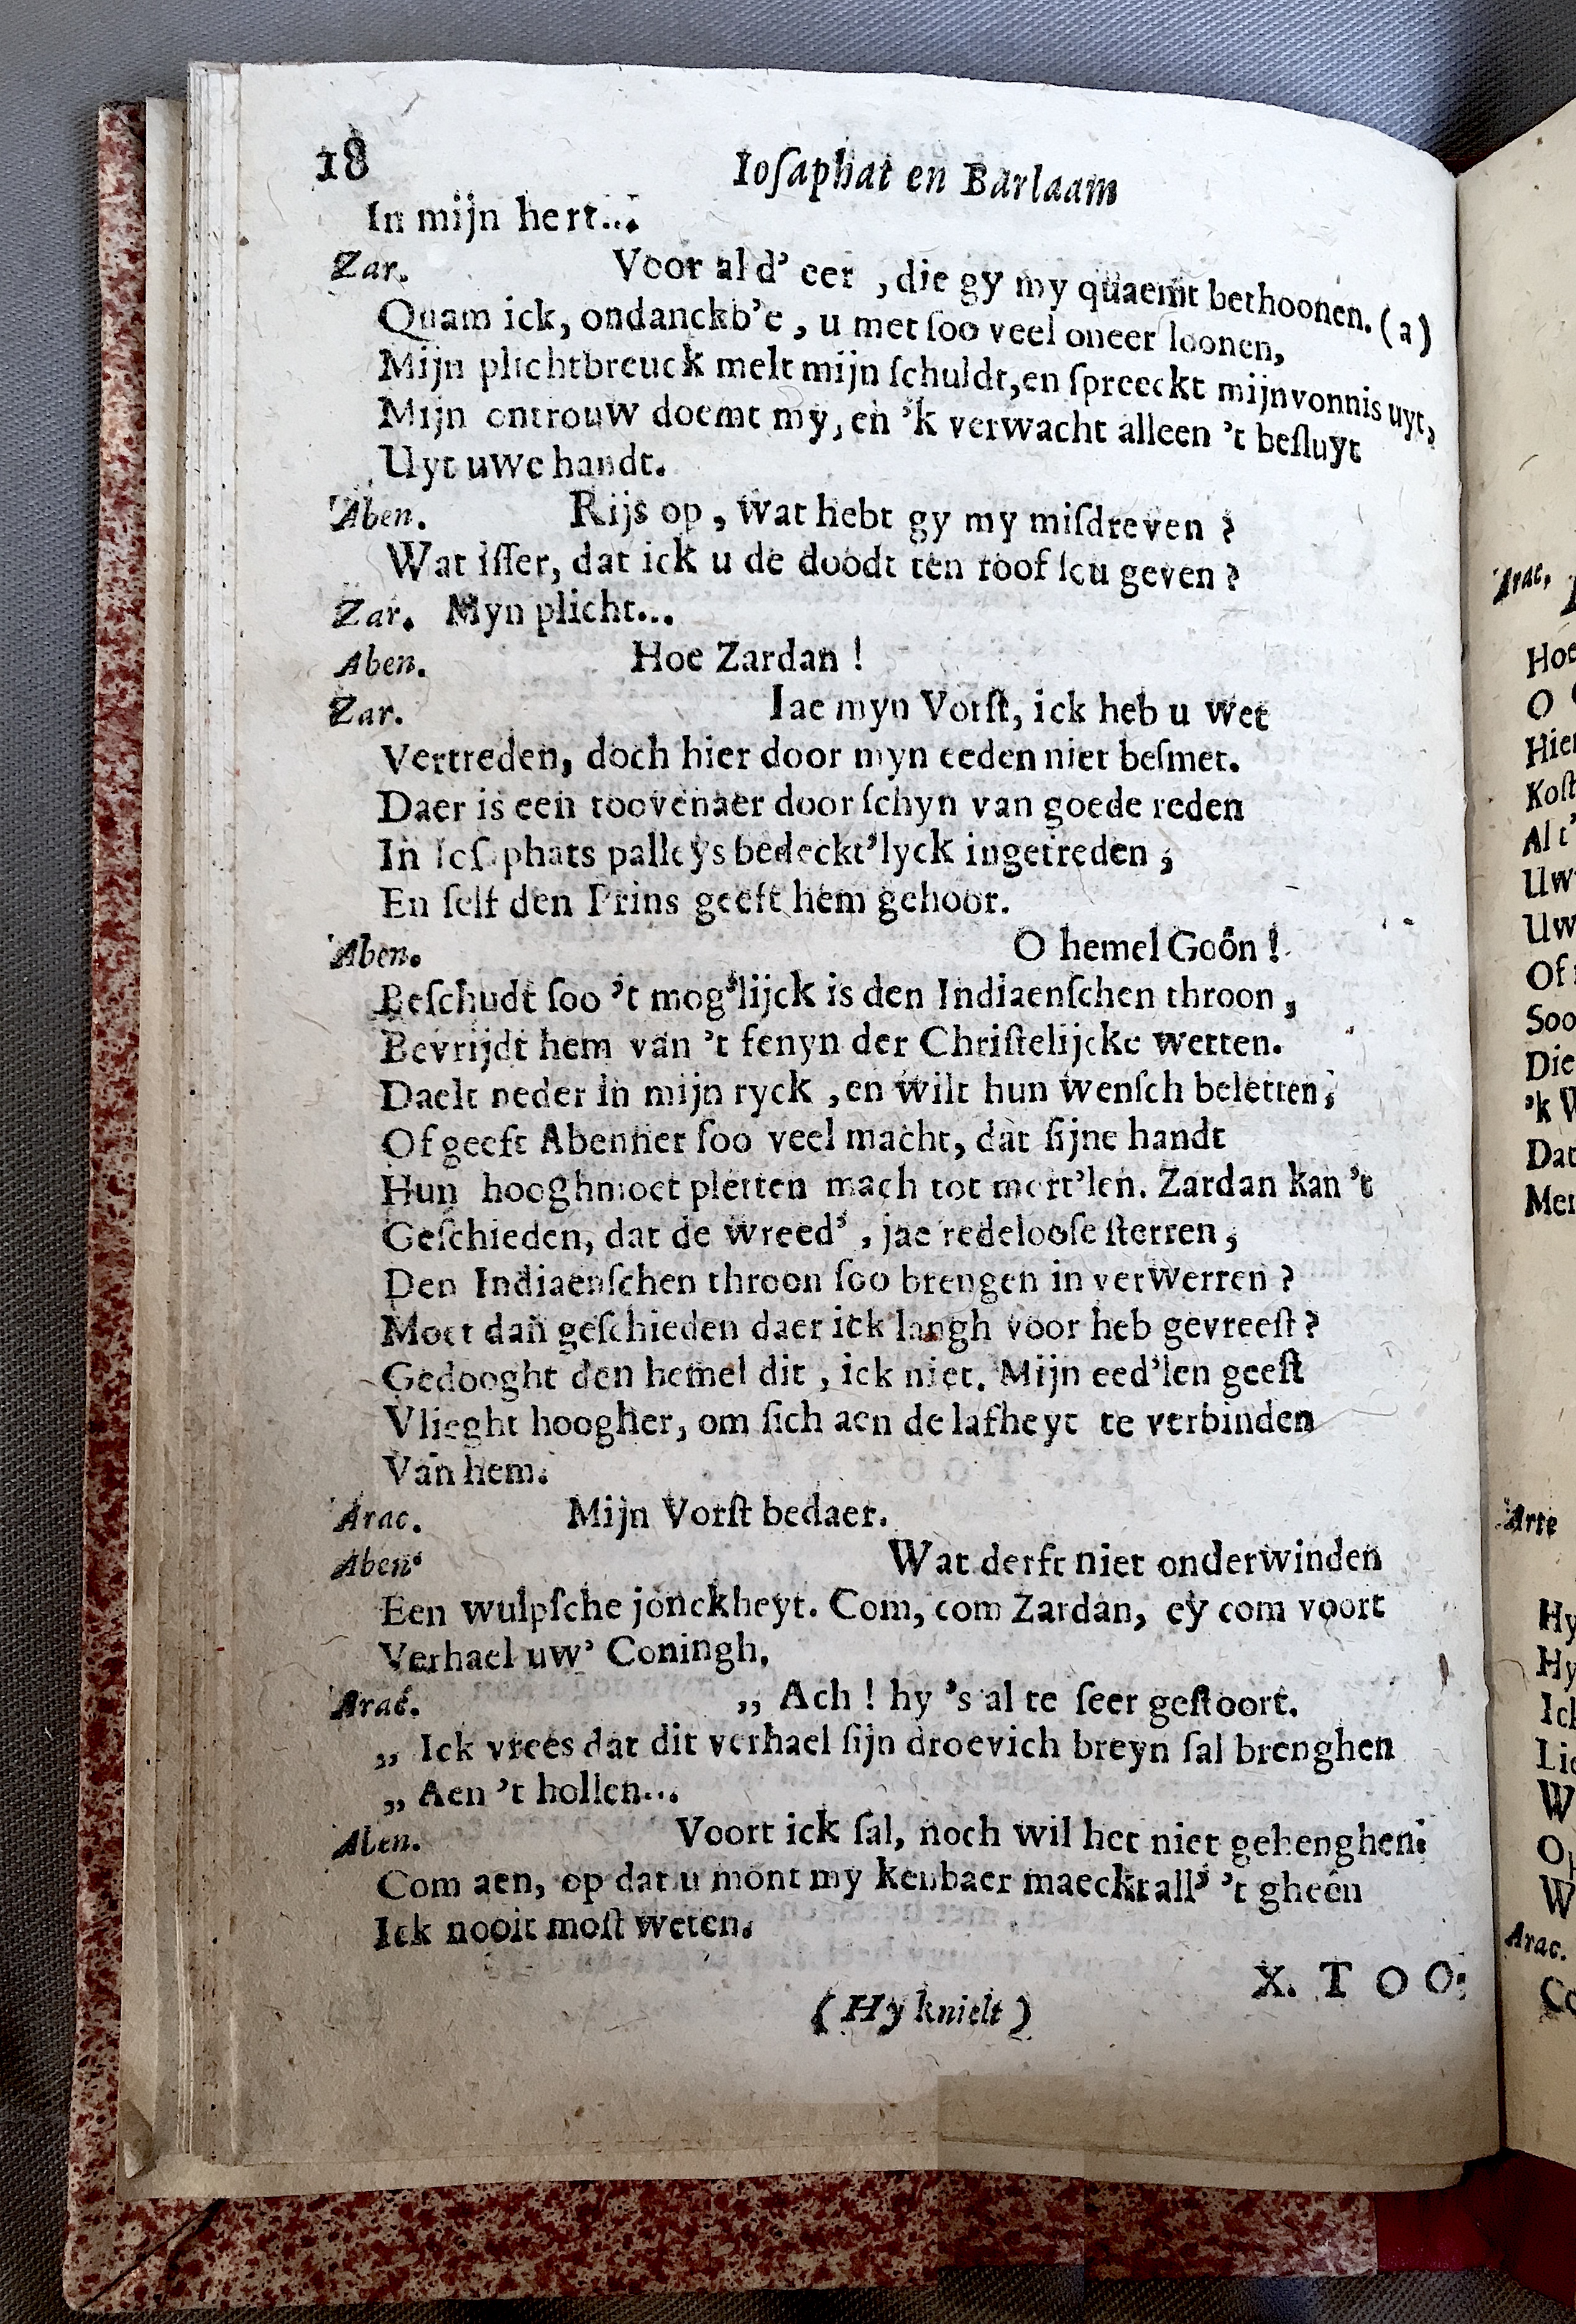 18
Iosaphat en Barlaam
In mijn hert...
Zar. Voor al d' eer , die gy my quaemt bethoonen. (a)
Quam ick, ondanckb're , u met soo veel oneer loonen,
Mijn plichtbreuck melt mijn schuldt, en spreeckt mijn vonnis uyt,
Mijn ontrouw doemt my, en 'k verwacht alleen 't besluyt
Uyt uwe handt.
Aben. Rijs op , wat hebt gy my misdreven ?
Wat isser, dat ick u de doodt ten roof sou geven ?
Zar. Myn plicht...
Aben. Hoe Zardan !
Zar. Iae myn Vorst, ick heb u wet
Vertreden, doch hier door myn eeden niet besmet.
Daer is een toovenaer door schyn van goede reden
In Iosaphats palleys bedeckt'lyck ingetreden ;
En self den Prins geeft hem gehoor.
Aben. O hemel Goôn !
Beschudt soo 't mog'lijck is den Indiaenschen throon ,
Bevrijdt hem van 't fenyn der Christelijcke wetten.
Daelt neder in mijn ryck , en wilt hun wensch beletten;
Of geeft Abenner soo veel macht, dat sijne handt
Hun hooghmoet pletten mach tot mort'len. Zardan kan 't
Geschieden, dat de wreed' , jae redeloose sterren ;
Den Indiaenschen throon soo brengen in verwerren ?
Moet dan geschieden daer ick langh voor heb gevreest ?
Gedooght den hemel dit , ick niet. Mijn eed'len geest
Vlieght hoogher, om sich aen de lafheyt te verbinden
Van hem.
Arac. Mijn Vorst bedaer.
Aben. Wat derft niet onderwinden
Een wulpsche jonckheyt. Com, com Zardan, ey com voort
Verhael uw' Coningh.
Arac. ,, Ach ! hy 's al te seer gestoort.
,, Ick vrees dat dit verhael sijn droevich breyn sal brenghen
,, Aen 't hollen...
Aben. Voort ick sal, noch wil het niet gehenghen.
Com aen, op dat u mont my kenbaer maeckt all' 't gheen
Ick nooit most weten.
X. TOO-
( Hy knielt )
Arac,
Hoe
O
Hier
Kost
Al t'
Uw
Uw
Of
Soo
Die
'k W
Dat
Met
Arte
Hy
Hy
Ick
Lie
W
Op
W
Arac.
Co